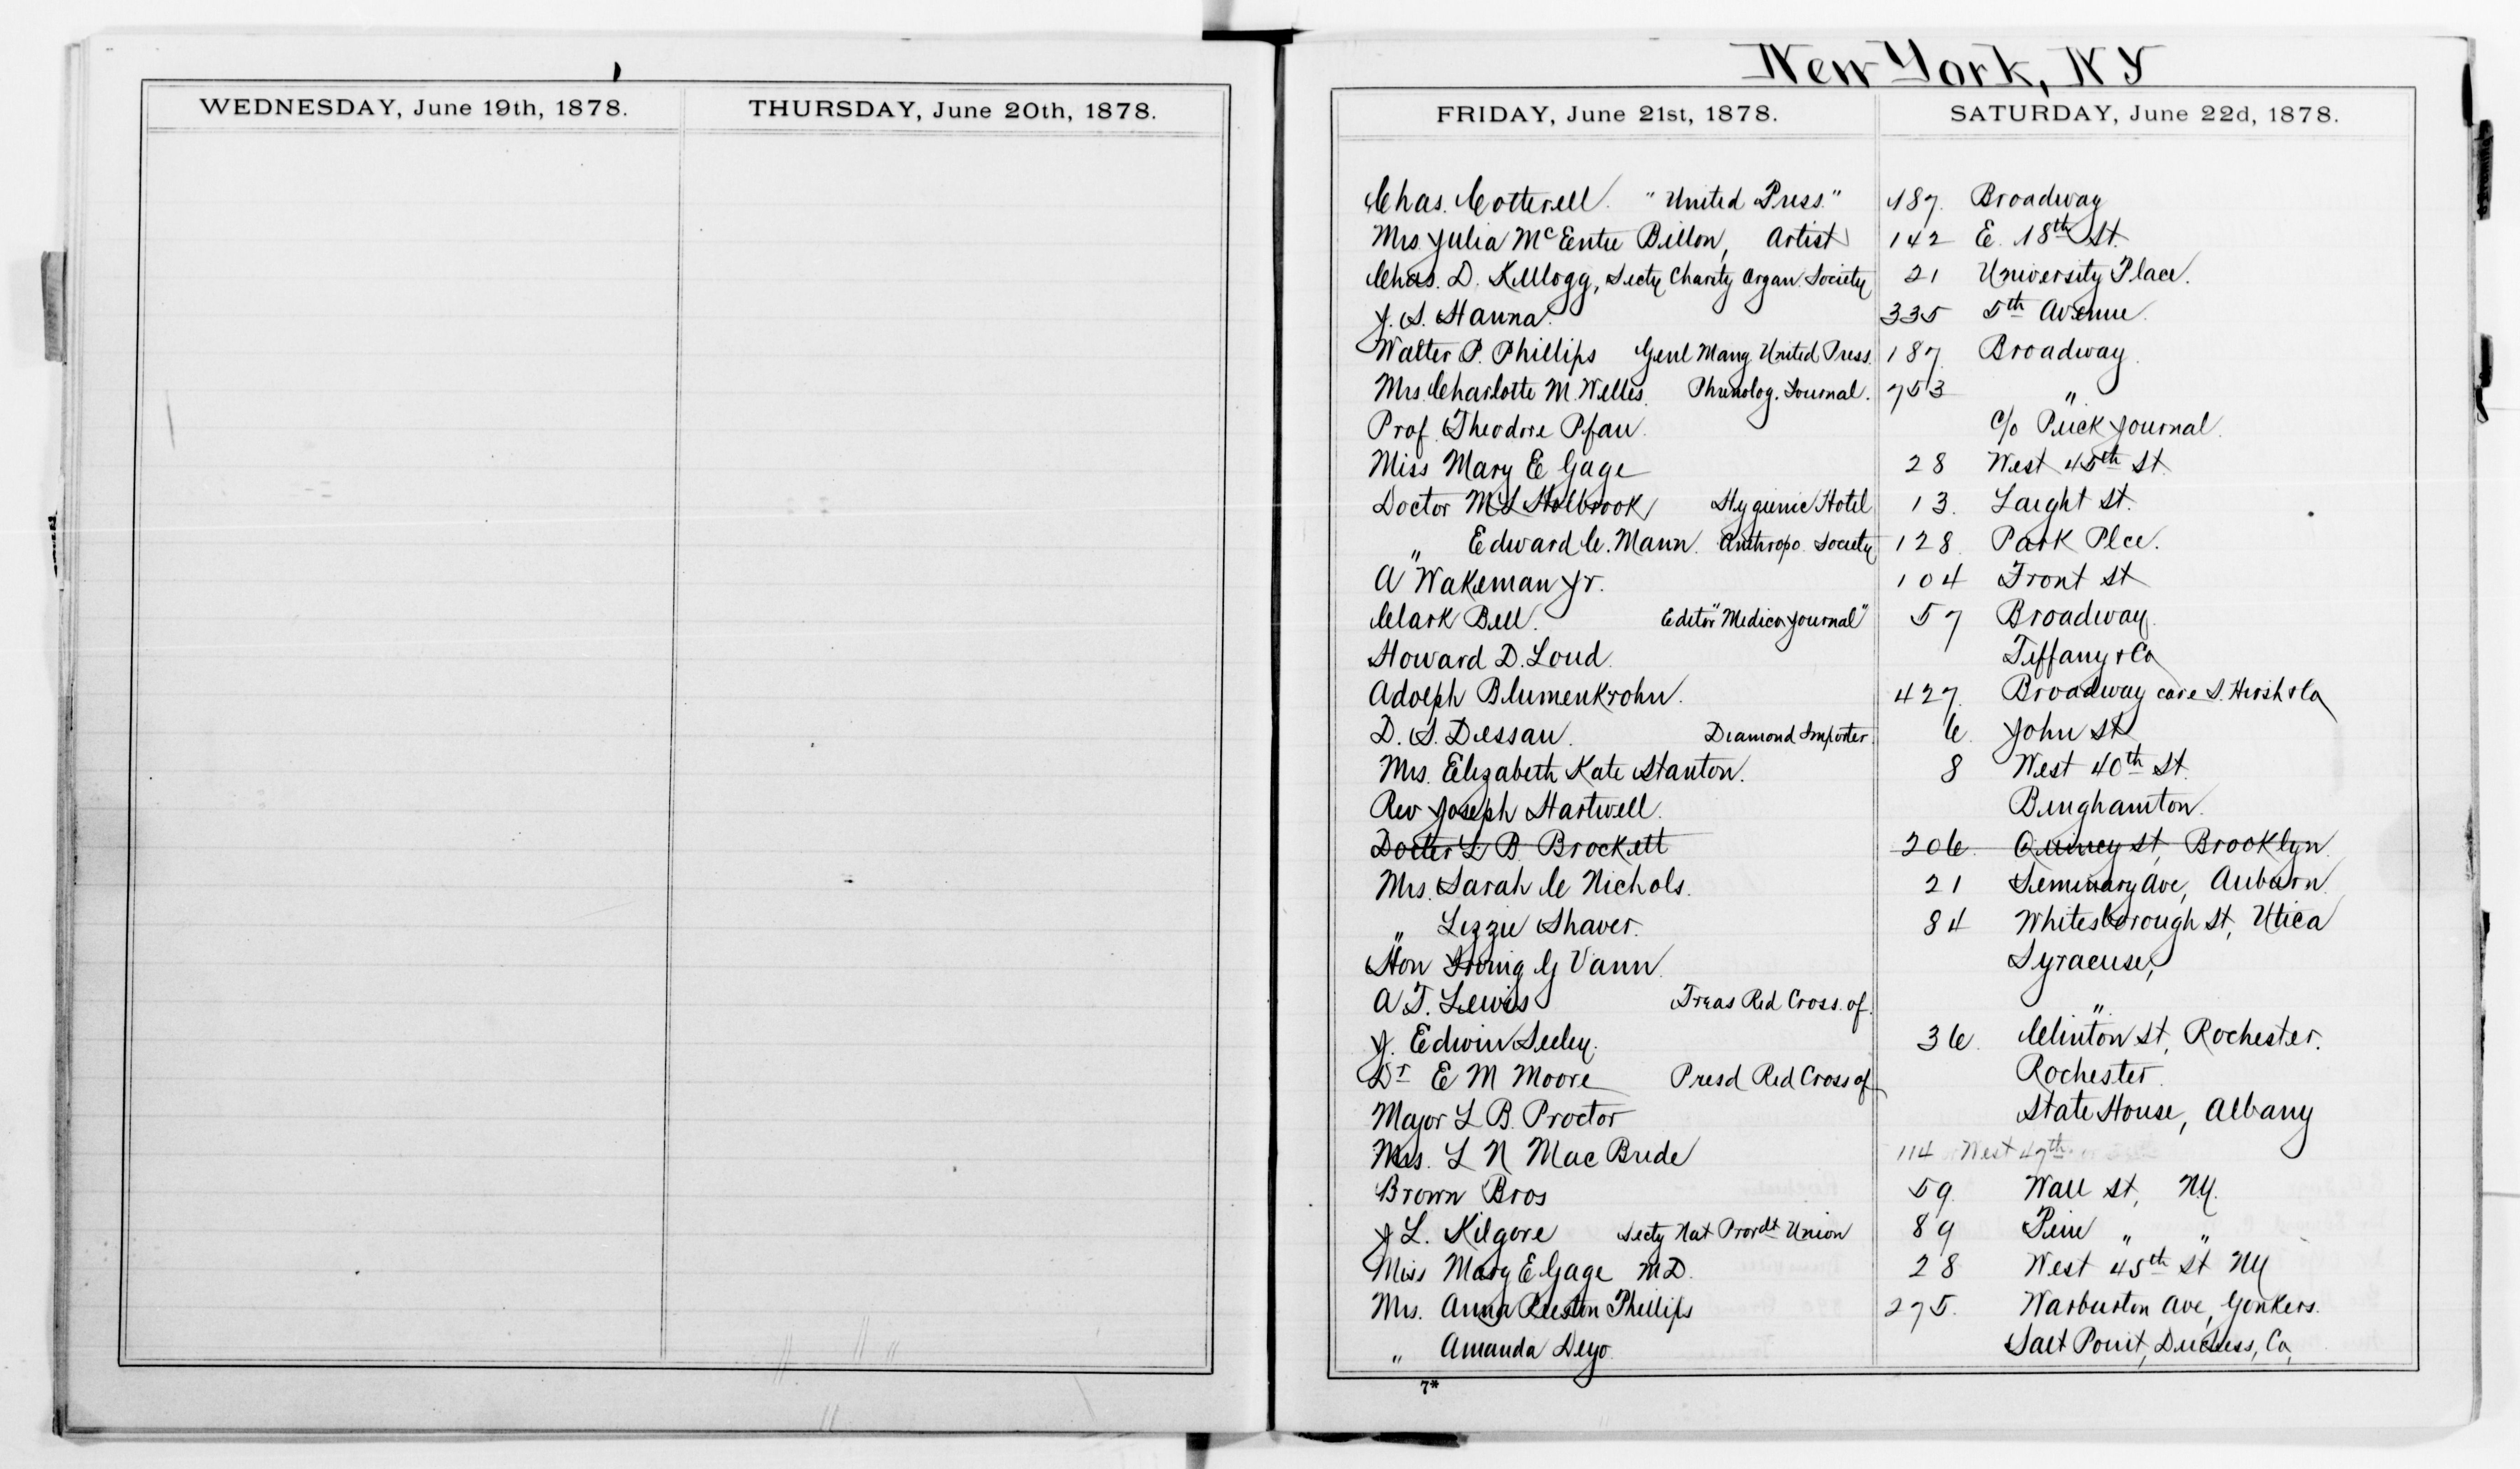 WEDNESDAY, June 19th, 1878.
THURSDAY, June 20th, 1878.
New York, NY
FRIDAY, June 21st, 1878.
SATURDAY, June 22d, 1878.
Chas. Cotterell. "United Press." 187. Broadway
Mrs. Julia McEntee Dillon, Artist 142 E. 18th St.
Chas. D. Kellogg, Secty Charity Organ. Society 21 University Place.
J. S. Hanna. 335 5th Avenue.
Walter P. Phillips Genl Mang. United Press. 187 Broadway.
Mrs. Charlotte M. Welles. Phrenolog. Journal. 753 "
Prof. Theodore Pfau. c/o Puck Journal.
Miss Mary E Gage 28 West 45th St.
Doctor M L Holbrook Hygienic Hotel 13. Laight St.
" Edward C. Mann. Anthropo. Society 128. Park Plce.
A Wakeman Jr. 104 Front St
Clark Bell. Editor "Medico Journal" 57 Broadway.
Howard D. Loud. Tiffany & Co
Adolph Blumenkrohn. 427. Broadway care S. Hirsh & Co
D. S. Dessau. Diamond Importer. 6. John St
Mrs. Elizabeth Kate Stanton. 8 West 40th St.
Rev Joseph Hartwell. Binghamton.
Docter L. B. Brockett 206. Quincy St, Brooklyn.
Mrs. Sarah C Nichols. 21 Seminary Ave, Auburn.
" Lizzie Shaver. 84 Whitesborough St, Utica
Hon Irving G Vann. Syracuse,
A T. Lewis Treas Red Cross. of. "
J. Edwin Seeley. 36. Clinton St, Rochester.
Dr E M Moore Presd Red Cross of Rochester.
Major L B. Proctor State House, Albany
Mrs. L N MacBride 114 West 47th
Brown Bros 59. Wall St, N.Y.
J L. Kilgore Secty Nat Provdt Union 89 Pine " "
Miss Mary E Gage M D. 28 West 45th St NY
Mrs. Anna Preston Phillips 275. Warburton Ave, Yonkers.
" Amanda Deyo. Salt Point, Duchess, Co,
7*